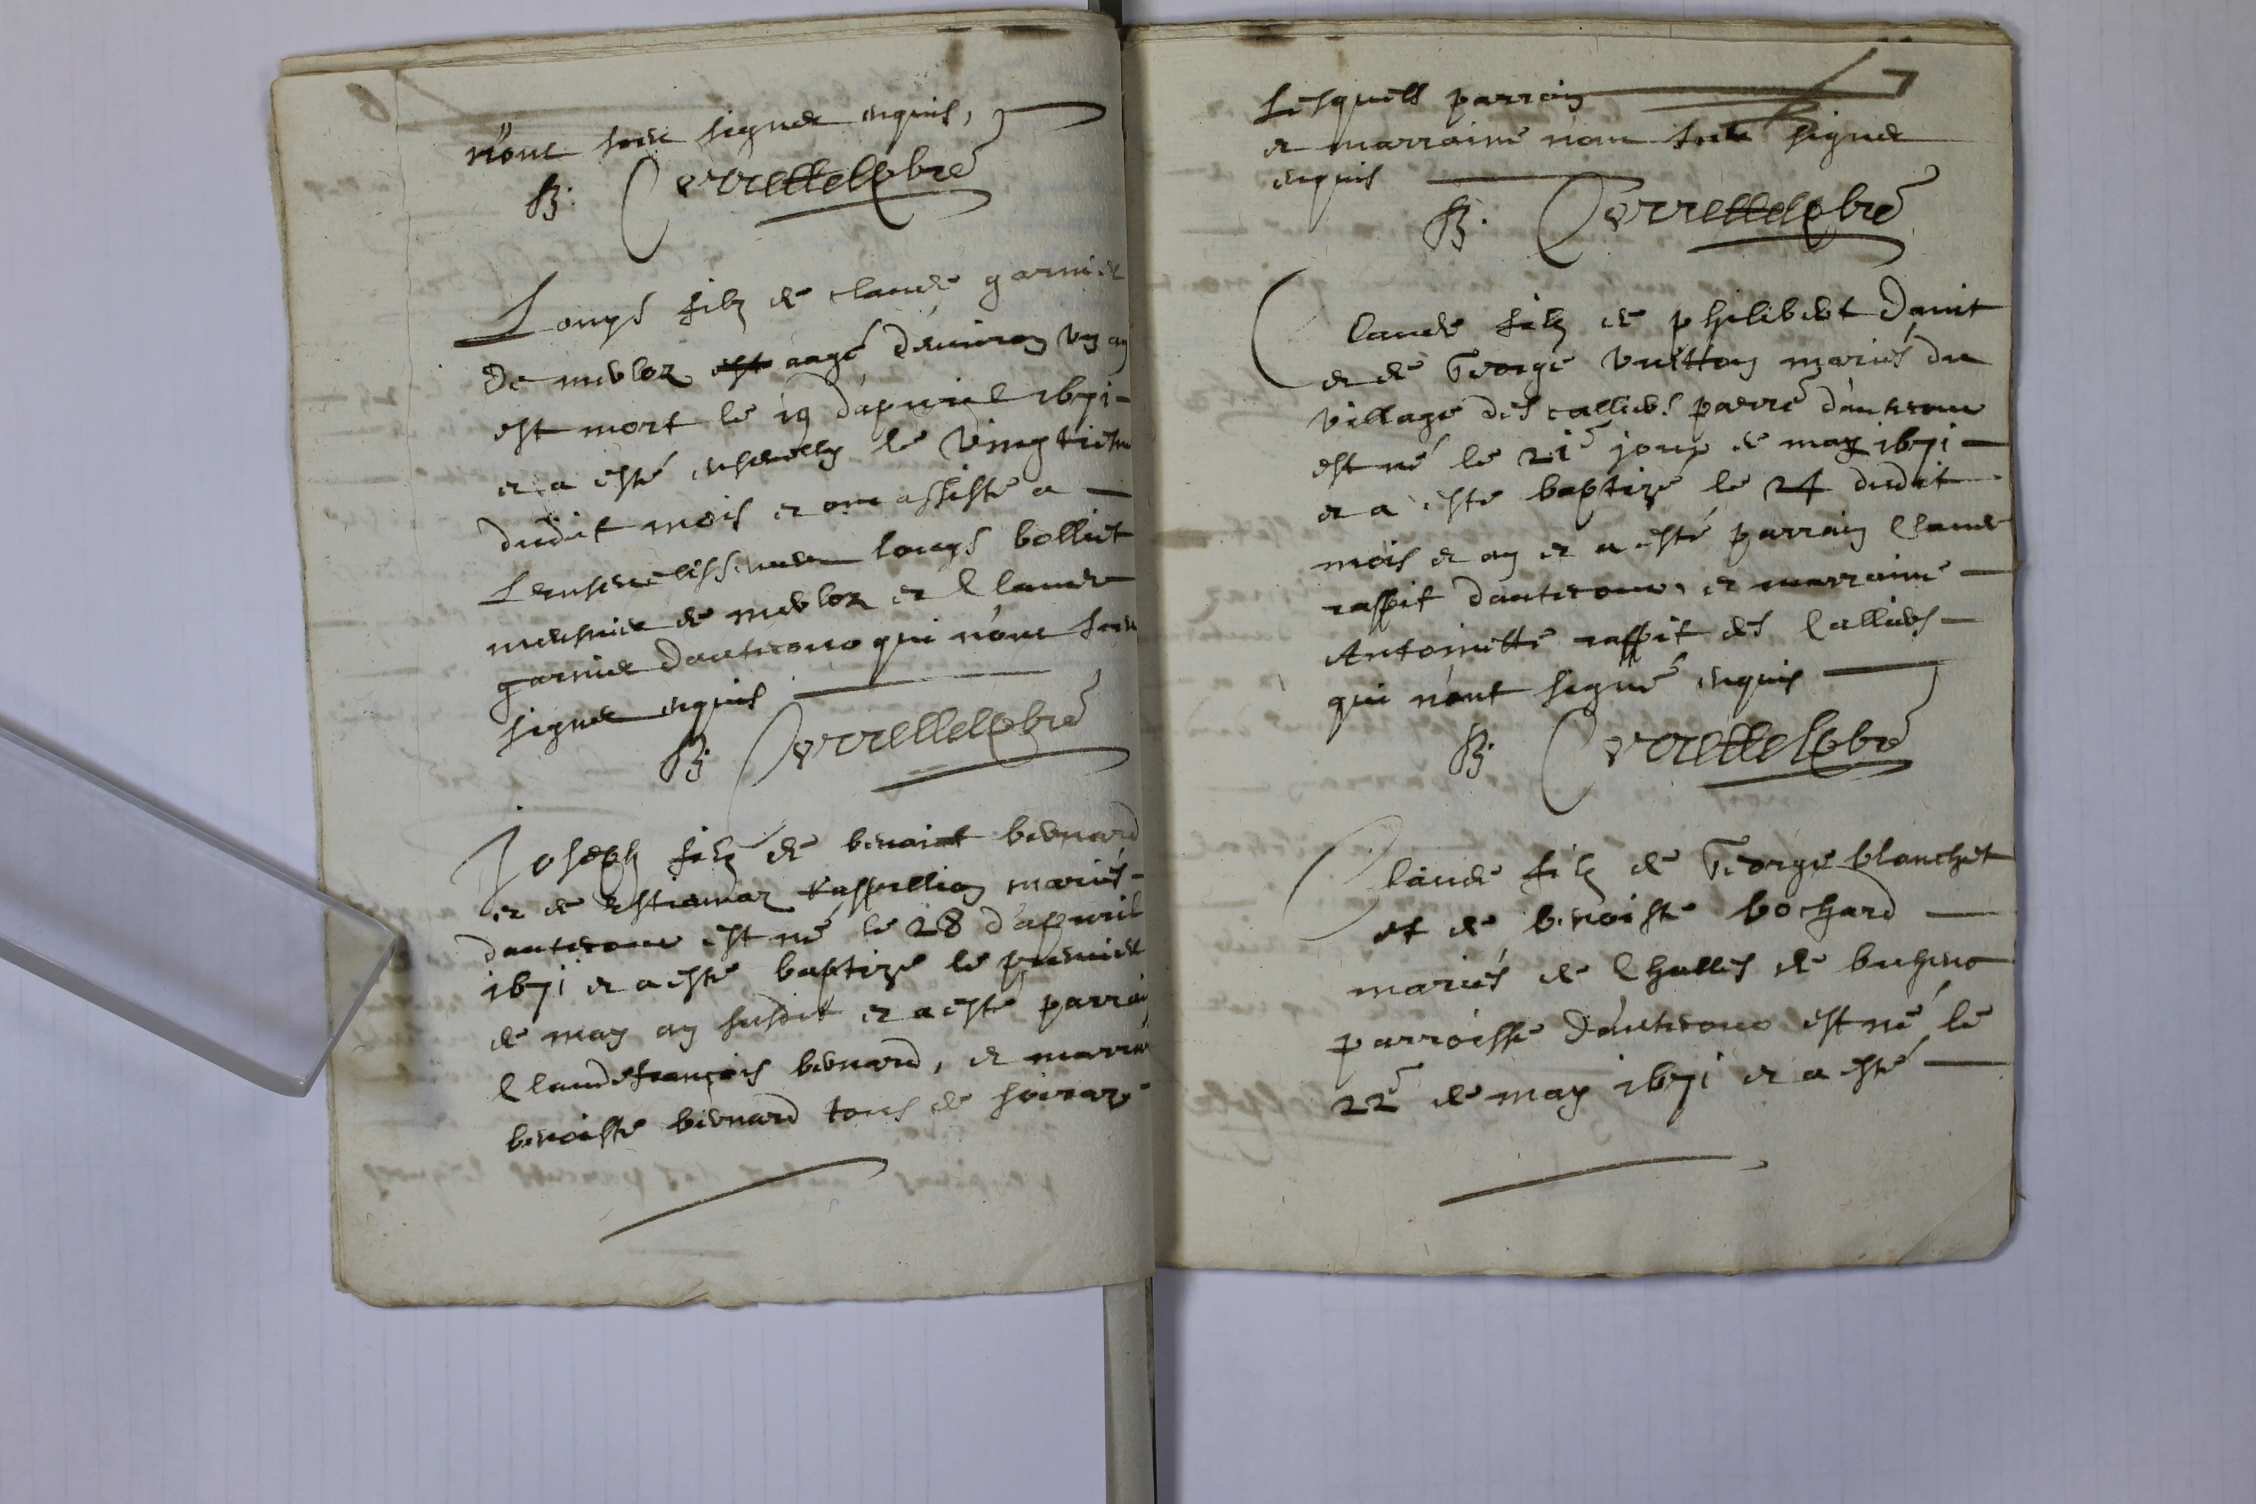 n'ont sceu signer enquis,
B: Cerrellelebre
Louys filz de claude garnier
De meuloz aagé denuiron vn an
est mort le 19 dapuril 1671
et a esté enseuely le vingtiesme
dudit mois et ont assisté a
Lenseuelissement louys bolliet
meusnier de meuloz et Claude
garnier dauterouo qui n'ont sceu
signer enquis
B: Cerrellelebre
Joseph filz de benoiat bernard
et de mariés
dauterouo est né le 28 d'apuril
1671 et a esté baptizé le premier
de may an susdit et a esté parrain
Claudefrançois bernard, et marraine
benoiste bernard tous de
7
Lesquells parrain
et marraine nont sceu signer
enquis
B: Cerrellelebre
Claude filz de philibert Dauit
et de George vuetton mariés du
village des calliers parre dauterouo
est né le 21e jour de may 1671
et a este baptizé le 24 dudit
mois et an et a esté parrain Claude
raspit dauterouo, et marraine
Antoinette raspit des Calliers
qui n'ont signé enquis
B: Cerrellelebre
Claude filz de George blanchet
et de benoiste bochard
mariés de Challes de
parroisse d'auterouo est né le
22e de may 1671 et a esté